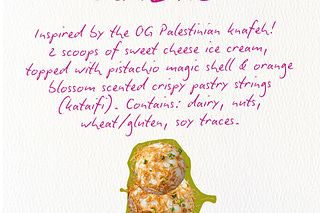 Inspired by the OG Palestinian knafeh!
2 scoops of sweet cheese ice cream,
topped with pistachio magic shell & orange
blossom scented crispy pastry strings
(kataifi). Contains: dairy, nuts,
wheat/gluten, soy traces.